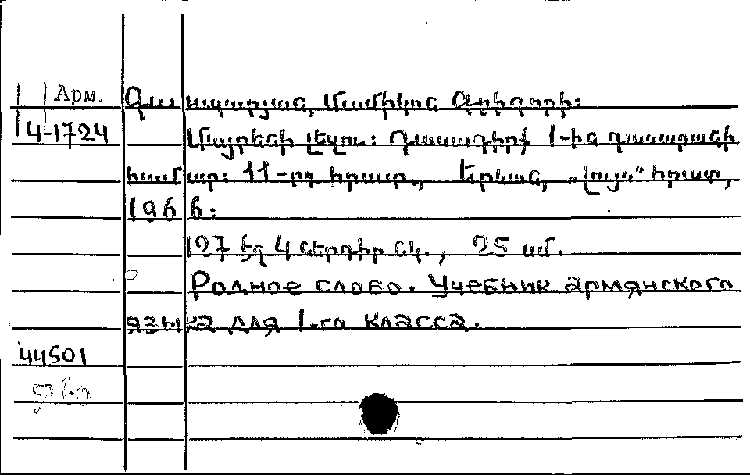 Арм. Գասպարյան, Մամիկոն Գրիգորի:
14-1724 Մայրենի լեզու: Դասագիրք 1-ին դասարանի
համար: 11-րդ հրատ., Երևան, „Լույս" հրատ,
1966:
127 էջ 4 ներդիր նկ., 25 սմ.
Родное слово. Учебник армянского
языка для 1-го класса.
44501